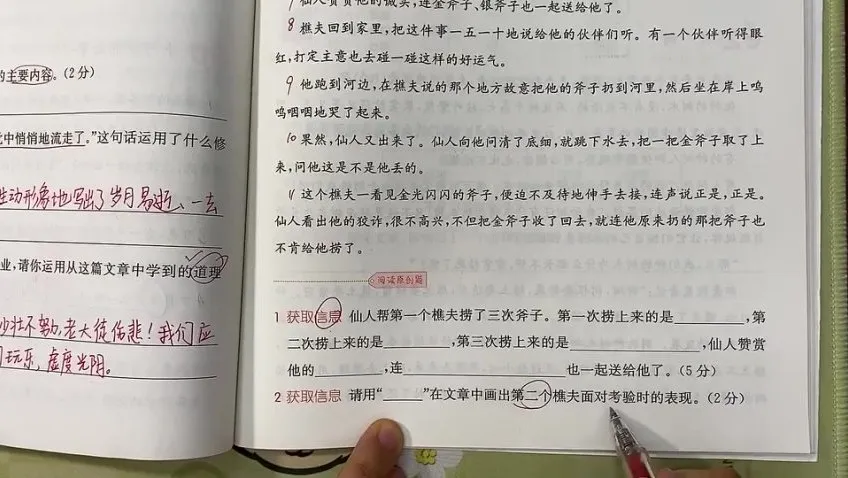 的主要内容。(2分)
中悄悄地流走了。”这句话运用了什么修
生动形象地写出了岁月易逝、一去
业,请你运用从这篇文章中学到的道理
少壮不努,老大徒伤悲!我们应
玩乐,虚度光阴。
7 仙人赞赏他的诚实,连金斧子、银斧子也一起送给他了。
8 樵夫回到家里,把这件事一五一十地说给他的伙伴们听。有一个伙伴听得眼
红,打定主意也去碰一碰这样的好运气。
9 他跑到河边,在樵夫说的那个地方故意把他的斧子扔到河里,然后坐在岸上呜
呜咽咽地哭了起来。
10 果然,仙人又出来了。仙人向他问清了底细,就跳下水去,把一把金斧子取了上
来,问他这是不是他丢的。
11 这个樵夫一看见金光闪闪的斧子,便迫不及待地伸手去接,连声说正是,正是。
仙人看出他的狡诈,很不高兴,不但把金斧子收了回去,就连他原来扔的那把斧子也
不肯给他捞了。
阅读原创篇
1 获取信息 仙人帮第一个樵夫捞了三次斧子。第一次捞上来的是________,第
二次捞上来的是________,第三次捞上来的是________,仙人赞赏
他的________,连________也一起送给他了。(5分)
2 获取信息 请用“____”在文章中画出第二个樵夫面对考验时的表现。(2分)